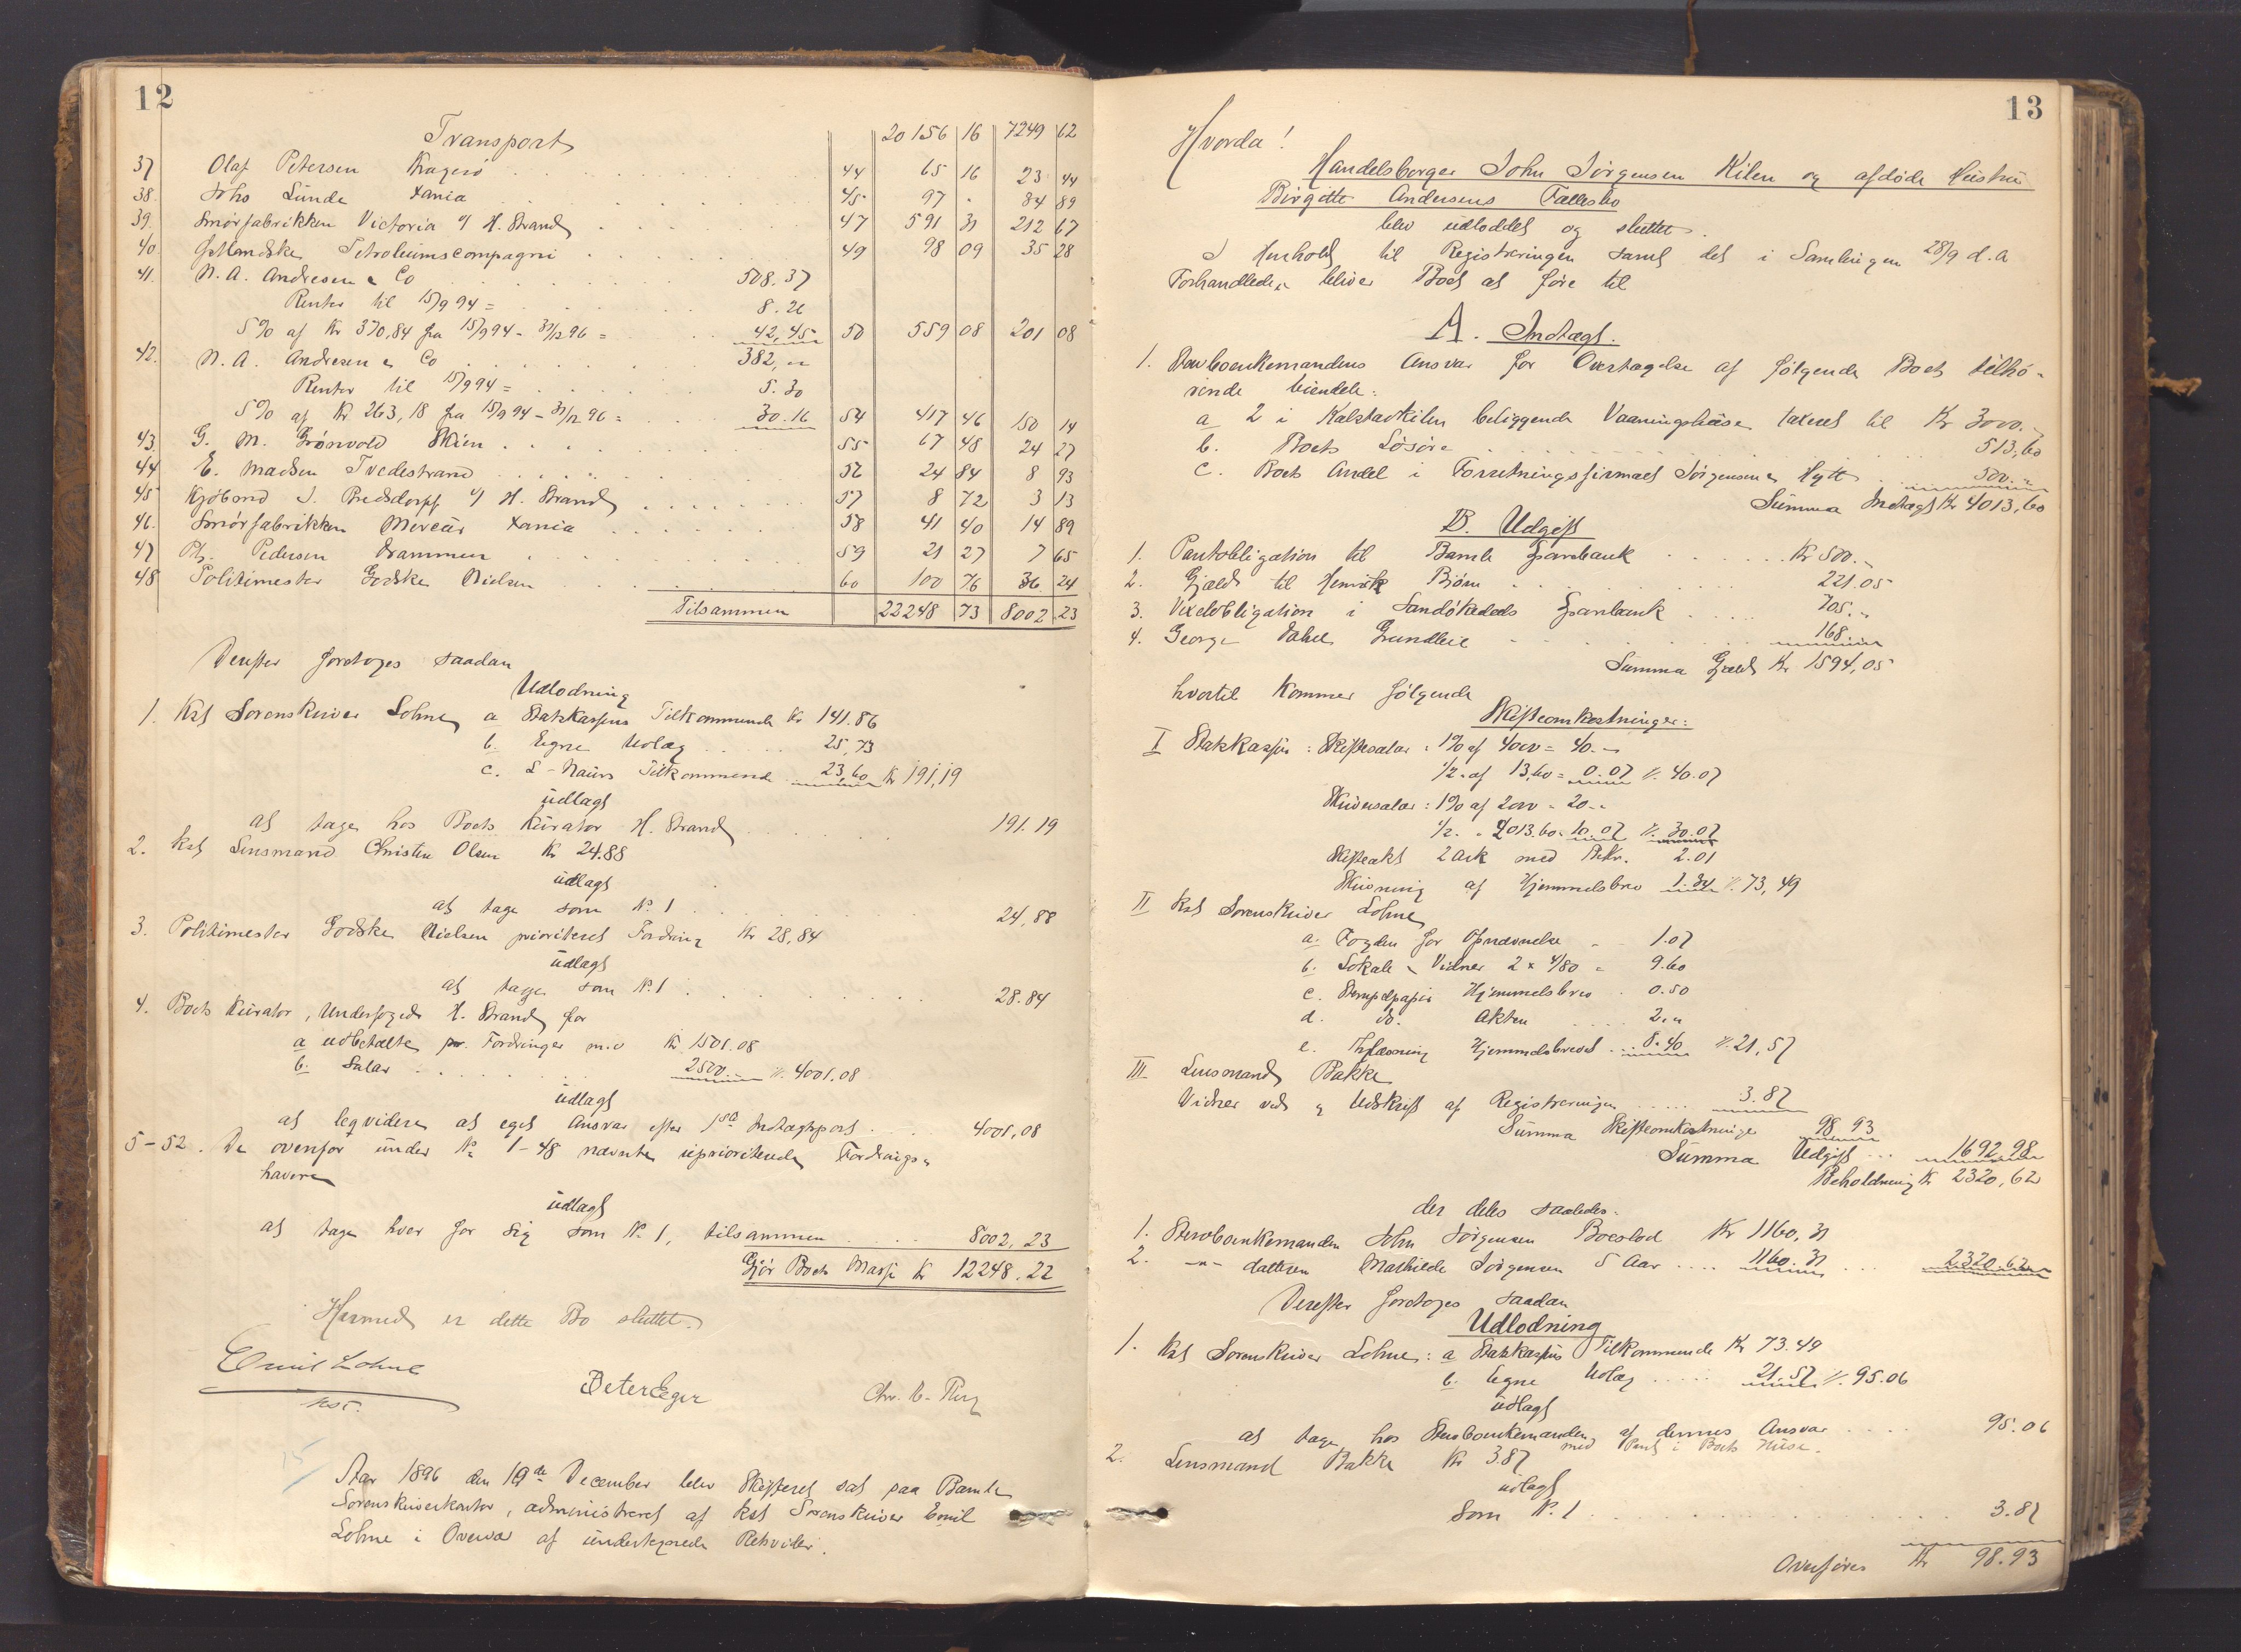 12
Transport 20156 16 7249 62
37 Olaf Petersen Kragerø 44 65 16 23 44
38. Johs Lunde Xania 45 97 " 34 89
39. Smørfabrikken Victoria v/ H. Strand 47 591 31 212 67
40. Østlandske Petroleumscompagni 49 98 09 35 28
41. N. A. Andresen & Co 508.37
Renter til 15/9 94 = 8.26
5% af Kr 370,84 fra 15/9 94 - 31/12 96 = 42,45 50 559 08 201 08
42. N. A. Andresen & Co 382, "
Renter til 15/9 94 = 5.30
5% af Kr 263,18 fra 15/9 94 - 31/12 96 = 30.16 54 417 46 150 14
43 G. M. Grønvold Skien 55 67 48 24 27
44 E. Madsen Tvedestrand 56 24 84 8 93
45 Kjøbmd J. Bredsdorff v/ H. Strand 57 8 72 3 13
46. Smørfabrikken Mercur Xania 58 41 40 14 89
47 Pedersen Drammen 59 21 27 7 65
48 Politimester Godske Nielsen 60 100 76 36 24
Tilsammen 22248 73 8002 23
Derefter foretoges saadan
Udlodning
1. Kst Sorenskriver Lohne a Statskassens Tilkommende Kr 141.86
b. Egne Udlæg 25,73
c. L-Maurs Tilkommende 23,60 Kr 191,19
udlagt
at tage hos Boets Kurator H. Strand 191.19
2. Kst Lensmand Christen Olsen Kr 24.88
udlagt
at tage som No 1 24,88
3. Politimester Godske Nielsen prioriteret Fordring Kr 28,84
udlagt
at tage som No 1 28.84
4. Boets Kurator, Underfoged H. Strand for
a udbetalte pr. Fordringer m.v Kr 1501.08
b. Salær 2500. " 4001.08
udlagt
at leqvidere at eget Ansvar efter 1ste Indtægtspost 4001,08
5-52. De ovenfor under No 1-48 nævnte uprioriterede Fordrings-
havere
udlagt
at tage hver for sig som No 1, tilsammen 8002,23
Gjør Boets Masse Kr 12248.22
Hermed er dette Bo sluttet.
Emil Lohne
kst.
Peter Eger
15
Aar 1896 den 19de December blev Skifteret sat paa Bamle
Sorenskriverkontor, administreret af kst Sorenskriver Emil
Lohne i Overvær af undertegnede Retsvidner.
13
Hvorda!
Handelsborger John Jörgensen Kilen og afdøde Hustru
Birgitte Andersens Fællesbo
blev udloddet og sluttet.
I Henhold til Registreringen samt det i Samlingen 28/9 d.a
Forhandlede bliver Boet at føre til
A. Indtægt.
1. Stervboenkemandens Ansvar for Overtagelse af følgende Boet tilhø-
rende Eiendele:
a 2 i Kalstadkilen beliggende Vaaningshuse taxeret til Kr 3000. "
b. Boets Løsøre 513,60
c. Boets Andel i Forretningsfirmaet Jörgensen & Hytt 500. "
Summa Indtægt Kr 4013,60
B. Udgift
1. Pantobligation til Bamle Sparebank Kr 500. "
2. Gjæld til Henrik Bjørn 221.05
3. Vexelobligation i Sandøkedals Sparebank 705. "
4. George Dahls Grundleie 168. "
Summa Gjæld Kr 1594,05
hvortil kommer følgende
Skifteomkostninger:
I Statskassen: Skiftesalær: 1% af 4000 = 40. "
1/2 " af 13,60 = 0.07 40.07
Skriversalær: 1% af 2000 = 20. "
1/2 " " 2013.60 = 10.07 30.07
Skifteakt 2 Ark med Bekr. 2.01
Skrivning af Hjemmelsbrev 1.34 73,49
II Kst Sorenskriver Lohne
a. Fogden for Opnævnelse 1.07
b. Lokale & Vidner 2 x 4/80 = 9.60
c. Stempelpapir Hjemmelsbrev 0.50
d. do. Akten 2. "
e. Thglæsning Hjemmelsbrevet 8.40 21,57
III Lensmand Bakke
Vidner ved & Udskrift af Registreringen 3.87
Summa Skifteomkostninger 98 93
Summa Udgift 1692,98
Beholdning Kr 2320,62
der deles saaledes:
1. Stervboenkemanden John Jörgensen Boeslod Kr 1160,31
2. -"- datteren Mathilde Jörgensen 5 Aar 1160.31 2320.62
Derefter foretoges saadan
Udlodning
1. Kst Sorenskriver Lohne: a Statskassens Tilkommende Kr 73.49
b. Egne Udlæg 21.57 95.06
udlagt
at tage hos Stervboenkemanden af dennes Ansvar 95.06
med Pant i Boets Huse.
2. Lensmand Bakke Kr 3.87
udlagt
som No 1 3.87
Overføres Kr 98.93